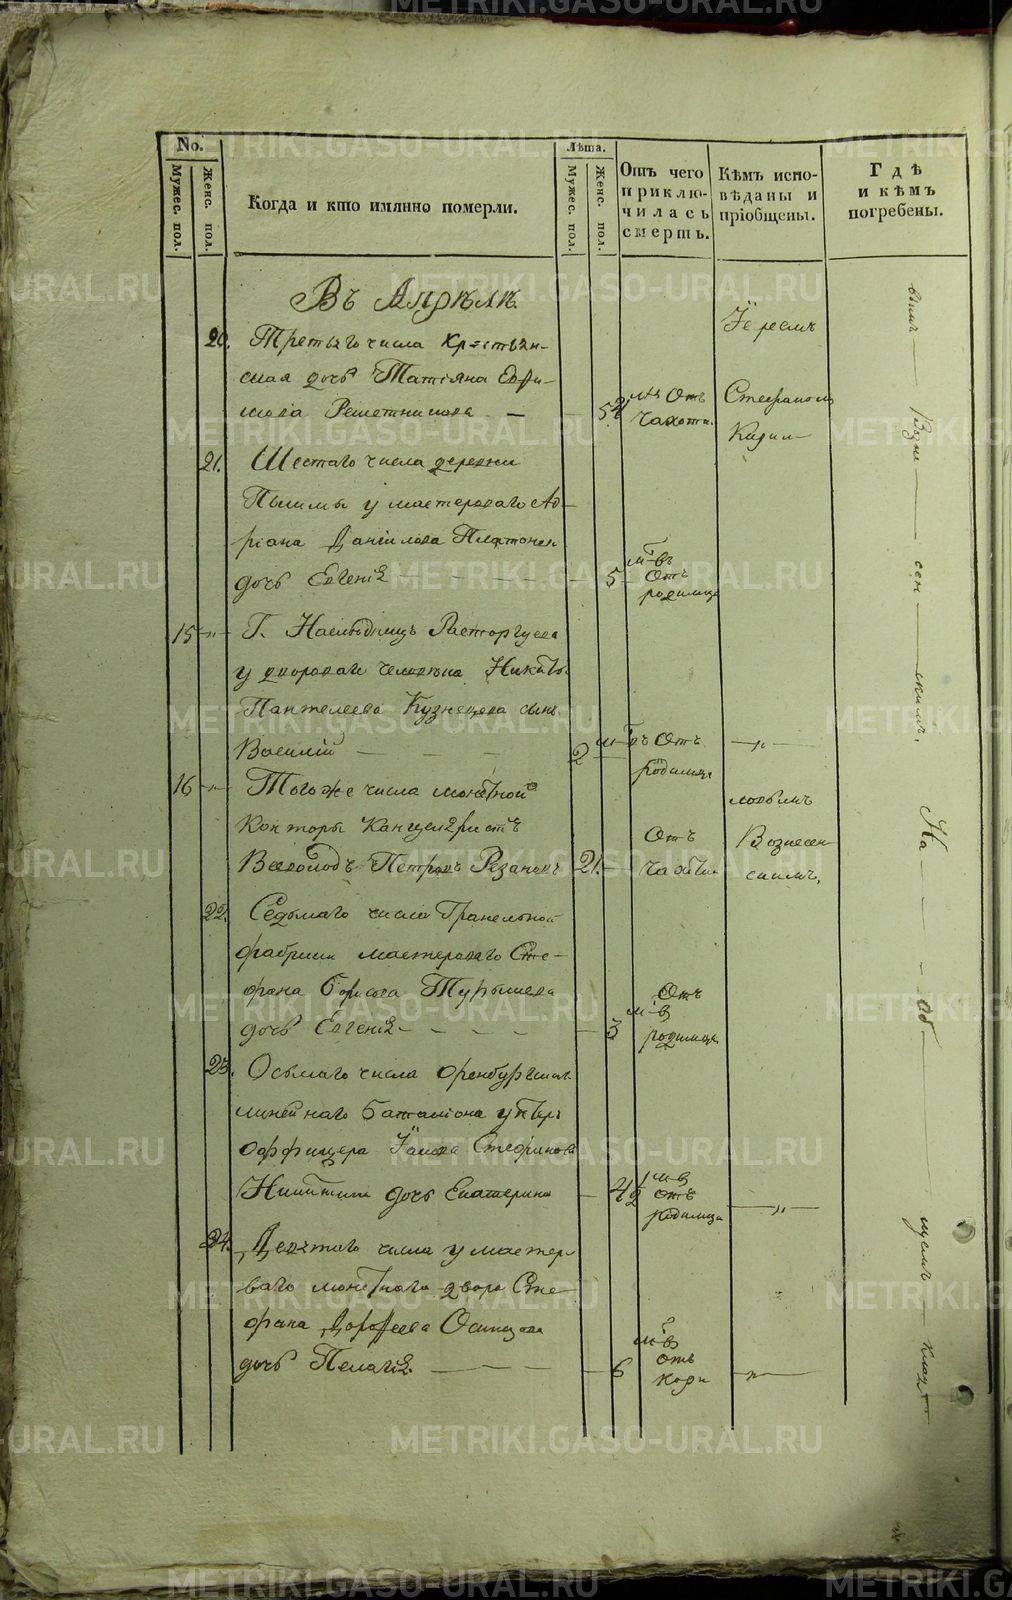 No.
Мужес. пол.
Женс. пол.
Когда и кто имянно померли.
Лѣта.
Мужес. пол.
Женс. пол.
Отъ чего
приклю-
чилась
смерть.
Кѣмъ испо-
вѣданы и
пріобщены.
Гдѣ
и кѣмъ
погребены.
Въ Апрѣлѣ
Іереемъ
20. Третьяго числа крестьян-
ская дочь Татіяна Ефи-
мова Решетникова — 52 Отъ Стефаномъ
чахотки.
21. Шестаго числа деревни
Пышмы у мастероваго Ад-
ріана Данилова
дочь Евгенія 5 м-въ
Отъ
родимца
15 Г. Наслѣдницъ Расторгуева
у двороваго человѣка Никиты
Пантелеева Кузнецова сынъ
Василій — 2 м-въ Отъ —„—
родимца
16 Тогоже числа монетной
Конторы Канцеляристъ отъ Вознесен-
Всеволодъ Петровъ Резановъ 21. чахотки скимъ.
22. Седьмаго числа Гранильной
фабрики мастероваго Сте-
фана Борисова Турышева
дочь Евгенія 3 м-въ
Отъ
родимца
23. Осьмаго числа Оренбургскаго
линейнаго баталіона унтеръ
оффицера Іакова Стефанова
Никитина дочь Екатерина 4 1/2 м-въ
отъ
родимца —„—
24. Девятаго числа у мастеро-
ваго монетнаго двора Сте-
фана Дорофеева Осинцова
дочь Пелагія 6 м-въ
отъ
кори —„—
Вознесенскимъ. На об
щемъ кладб
METRIKI.GASO-URAL.RU